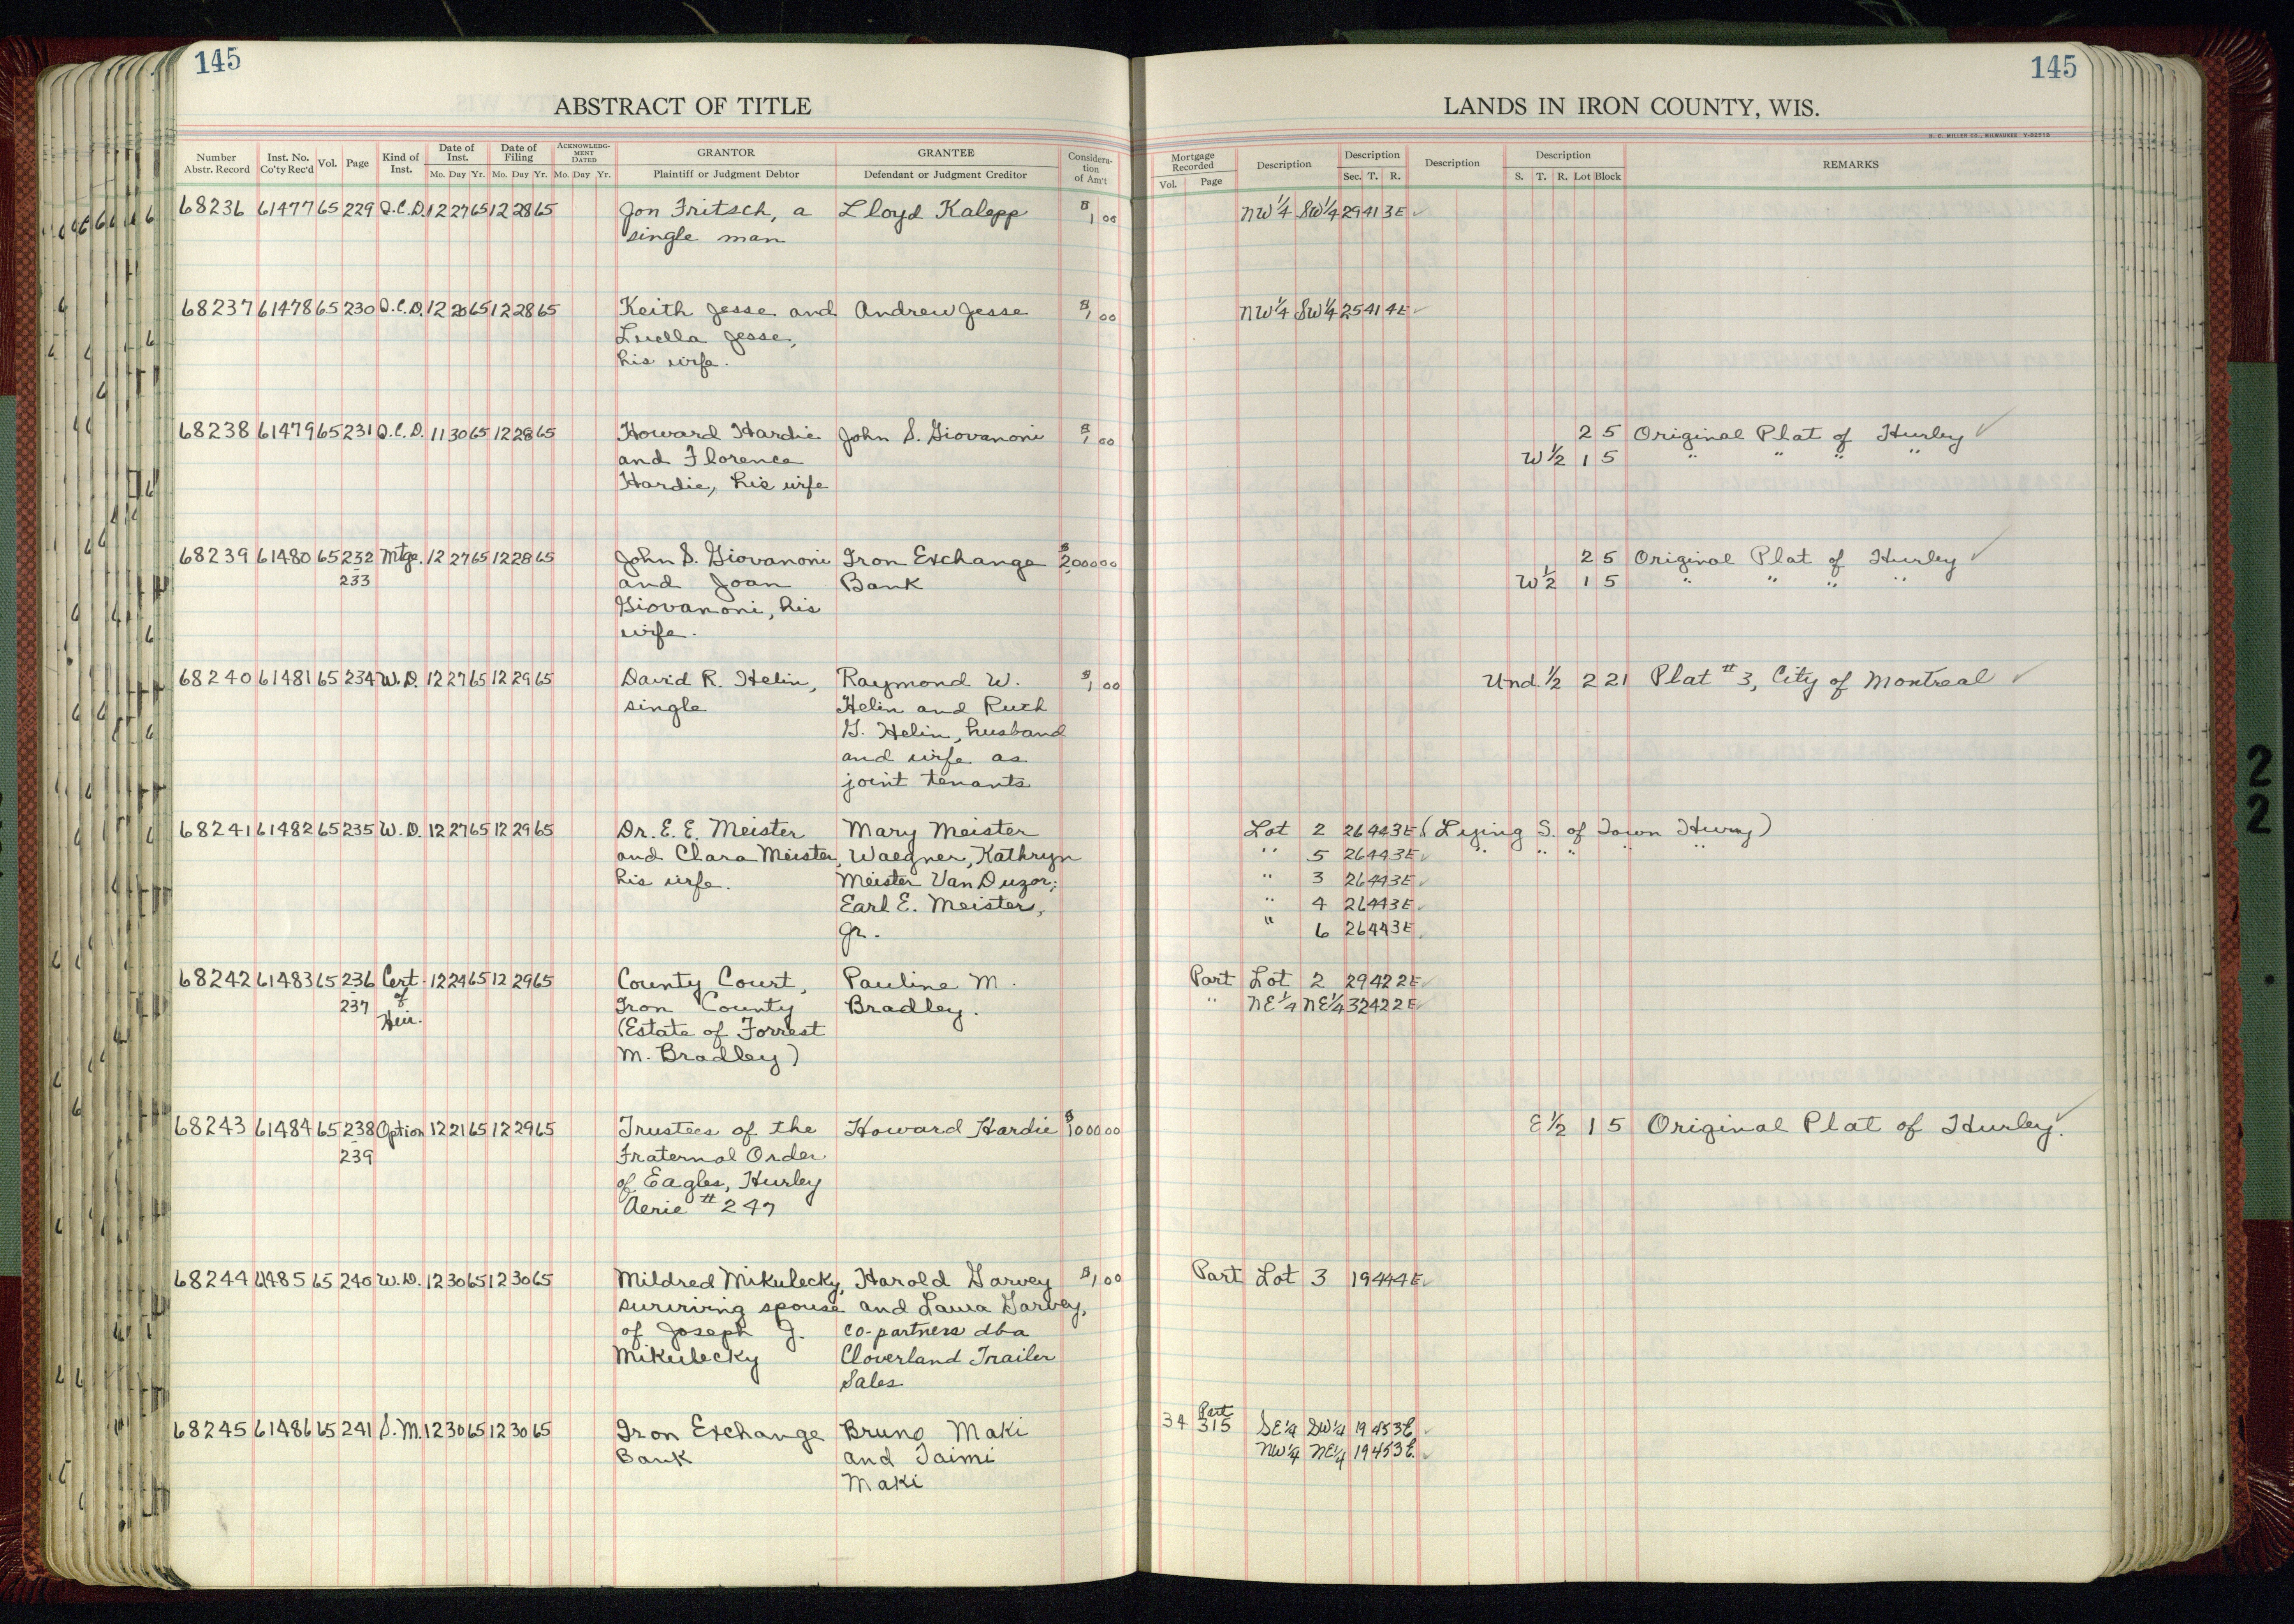 145
145
ABSTRACT OF TITLE
LANDS IN IRON COUNTY, WIS.
H. C. MILLER CO., MILWAUKEE
Number Abstr. Record Inst. No. Co'ty Rec'd Vol. Page Kind of Inst. Date of Inst. Mo. Day Yr. Date of Filing Mo. Day Yr. ACKNOWLEDG-MENT DATED Mo. Day Yr. GRANTOR Plaintiff or Judgment Debtor GRANTEE Defendant or Judgment Creditor Considera-tion of Am't
Mortgage Recorded Vol. Page Description Description Sec. T. R. Description Description S. T. R. Lot Block REMARKS
68236 61477 65 229 Q.C.D. 12 27 65 12 28 65 Jon Fritsch, a Lloyd Kalepp $1 00 NW 1/4 SW 1/4 29 41 3E ✓
single man
68237 61478 65 230 Q.C.D. 12 20 65 12 28 65 Keith Jesse and Andrew Jesse $1 00 NW 1/4 SW 1/4 25 41 4E ✓
Luella Jesse,
his wife.
68238 61479 65 231 Q.C.D. 11 30 65 12 28 65 Howard Hardie John S. Giovanoni $1 00 2 5 Original Plat of Hurley ✓
and Florence W 1/2 1 5 " " " "
Hardie, his wife
68239 61480 65 232 Mtge. 12 27 65 12 28 65 John S. Giovanoni Iron Exchange $2,000 00 2 5 Original Plat of Hurley ✓
-233 and Joan Bank W 1/2 1 5 " " " "
Giovanoni, his
wife.
68240 61481 65 234 W.D. 12 27 65 12 29 65 David R. Helin, Raymond W. $1 00 Und. 1/2 2 21 Plat #3, City of Montreal ✓
single Helin and Ruth
G. Helin, husband
and wife as
joint tenants
68241 61482 65 235 W.D. 12 27 65 12 29 65 Dr. E. E. Meister Mary Meister Lot 2 26 44 3E (Lying S. of Town Hwy)
and Clara Meister, Waegner, Kathryn " 5 26 44 3E ✓ " " " " "
his wife. Meister Van Duzor; " 3 26 44 3E ✓
Earl E. Meister, " 4 26 44 3E ✓
Jr. " 6 26 44 3E ✓
68242 61483 65 236 Cert. 12 24 65 12 29 65 County Court, Pauline M. Part Lot 2 29 42 2E ✓
-237 of Iron County Bradley. " NE 1/4 NE 1/4 32 42 2E ✓
Heir. (Estate of Forrest
M. Bradley)
68243 61484 65 238 Option 12 21 65 12 29 65 Trustees of the Howard Hardie $1000 00 E 1/2 1 5 Original Plat of Hurley. ✓
-239 Fraternal Order
of Eagles, Hurley
Aerie #247
68244 61485 65 240 W.D. 12 30 65 12 30 65 Mildred Mikulecky, Harold Garvey $1 00 Part Lot 3 19 44 4E ✓
surviving spouse and Laura Garvey,
of Joseph J. co-partners dba
Mikulecky Cloverland Trailer
Sales
68245 61486 65 241 S.M. 12 30 65 12 30 65 Iron Exchange Bruno Maki 34 Part 315 SE 1/4 SW 1/4 19 45 3E. ✓
Bank and Taimi NW 1/4 NE 1/4 19 45 3E. ✓
Maki
22